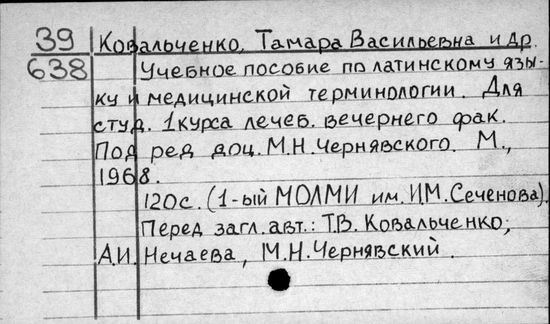 39 Ковальченко, Тамара Васильевна и др.
638 Учебное пособие по латинскому язы-
ку и медицинской терминологии. Для
студ. 1 курса лечеб. вечернего фак.
Под ред доц. М.Н. Чернявского. М.,
1968.
120с. (1-ый МОЛМИ им. И.М. Сеченова).
Перед загл. авт.: Т.В. Ковальченко,
А.И. Нечаева, М.Н. Чернявский.